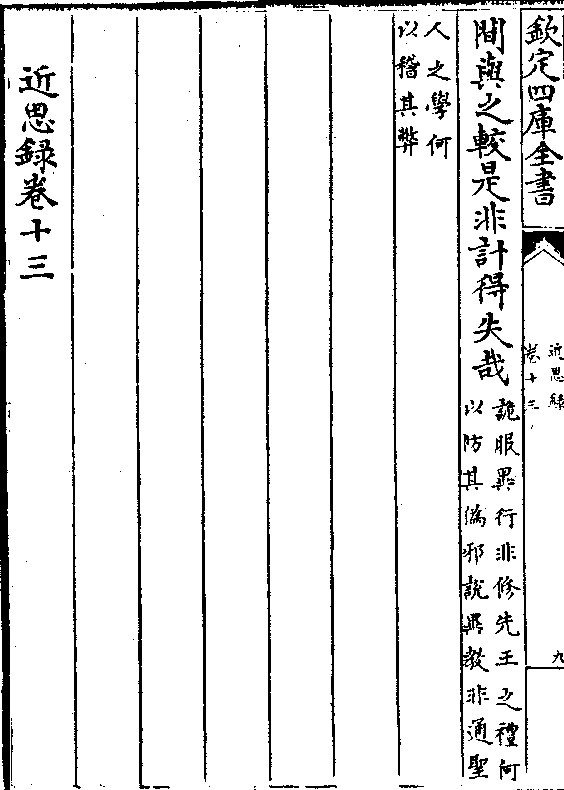 欽定四庫全書
近思錄
卷十三
九
間與之較是非計得失哉
詭服異行非修先王之禮何
以防其偽邪說異教非通聖
人之學何
以稽其弊
近思錄卷十三